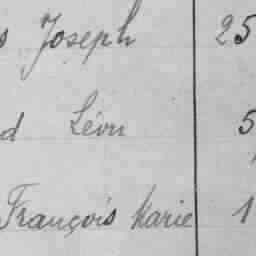 s Joseph 25
d Léon 5
François Marie 1